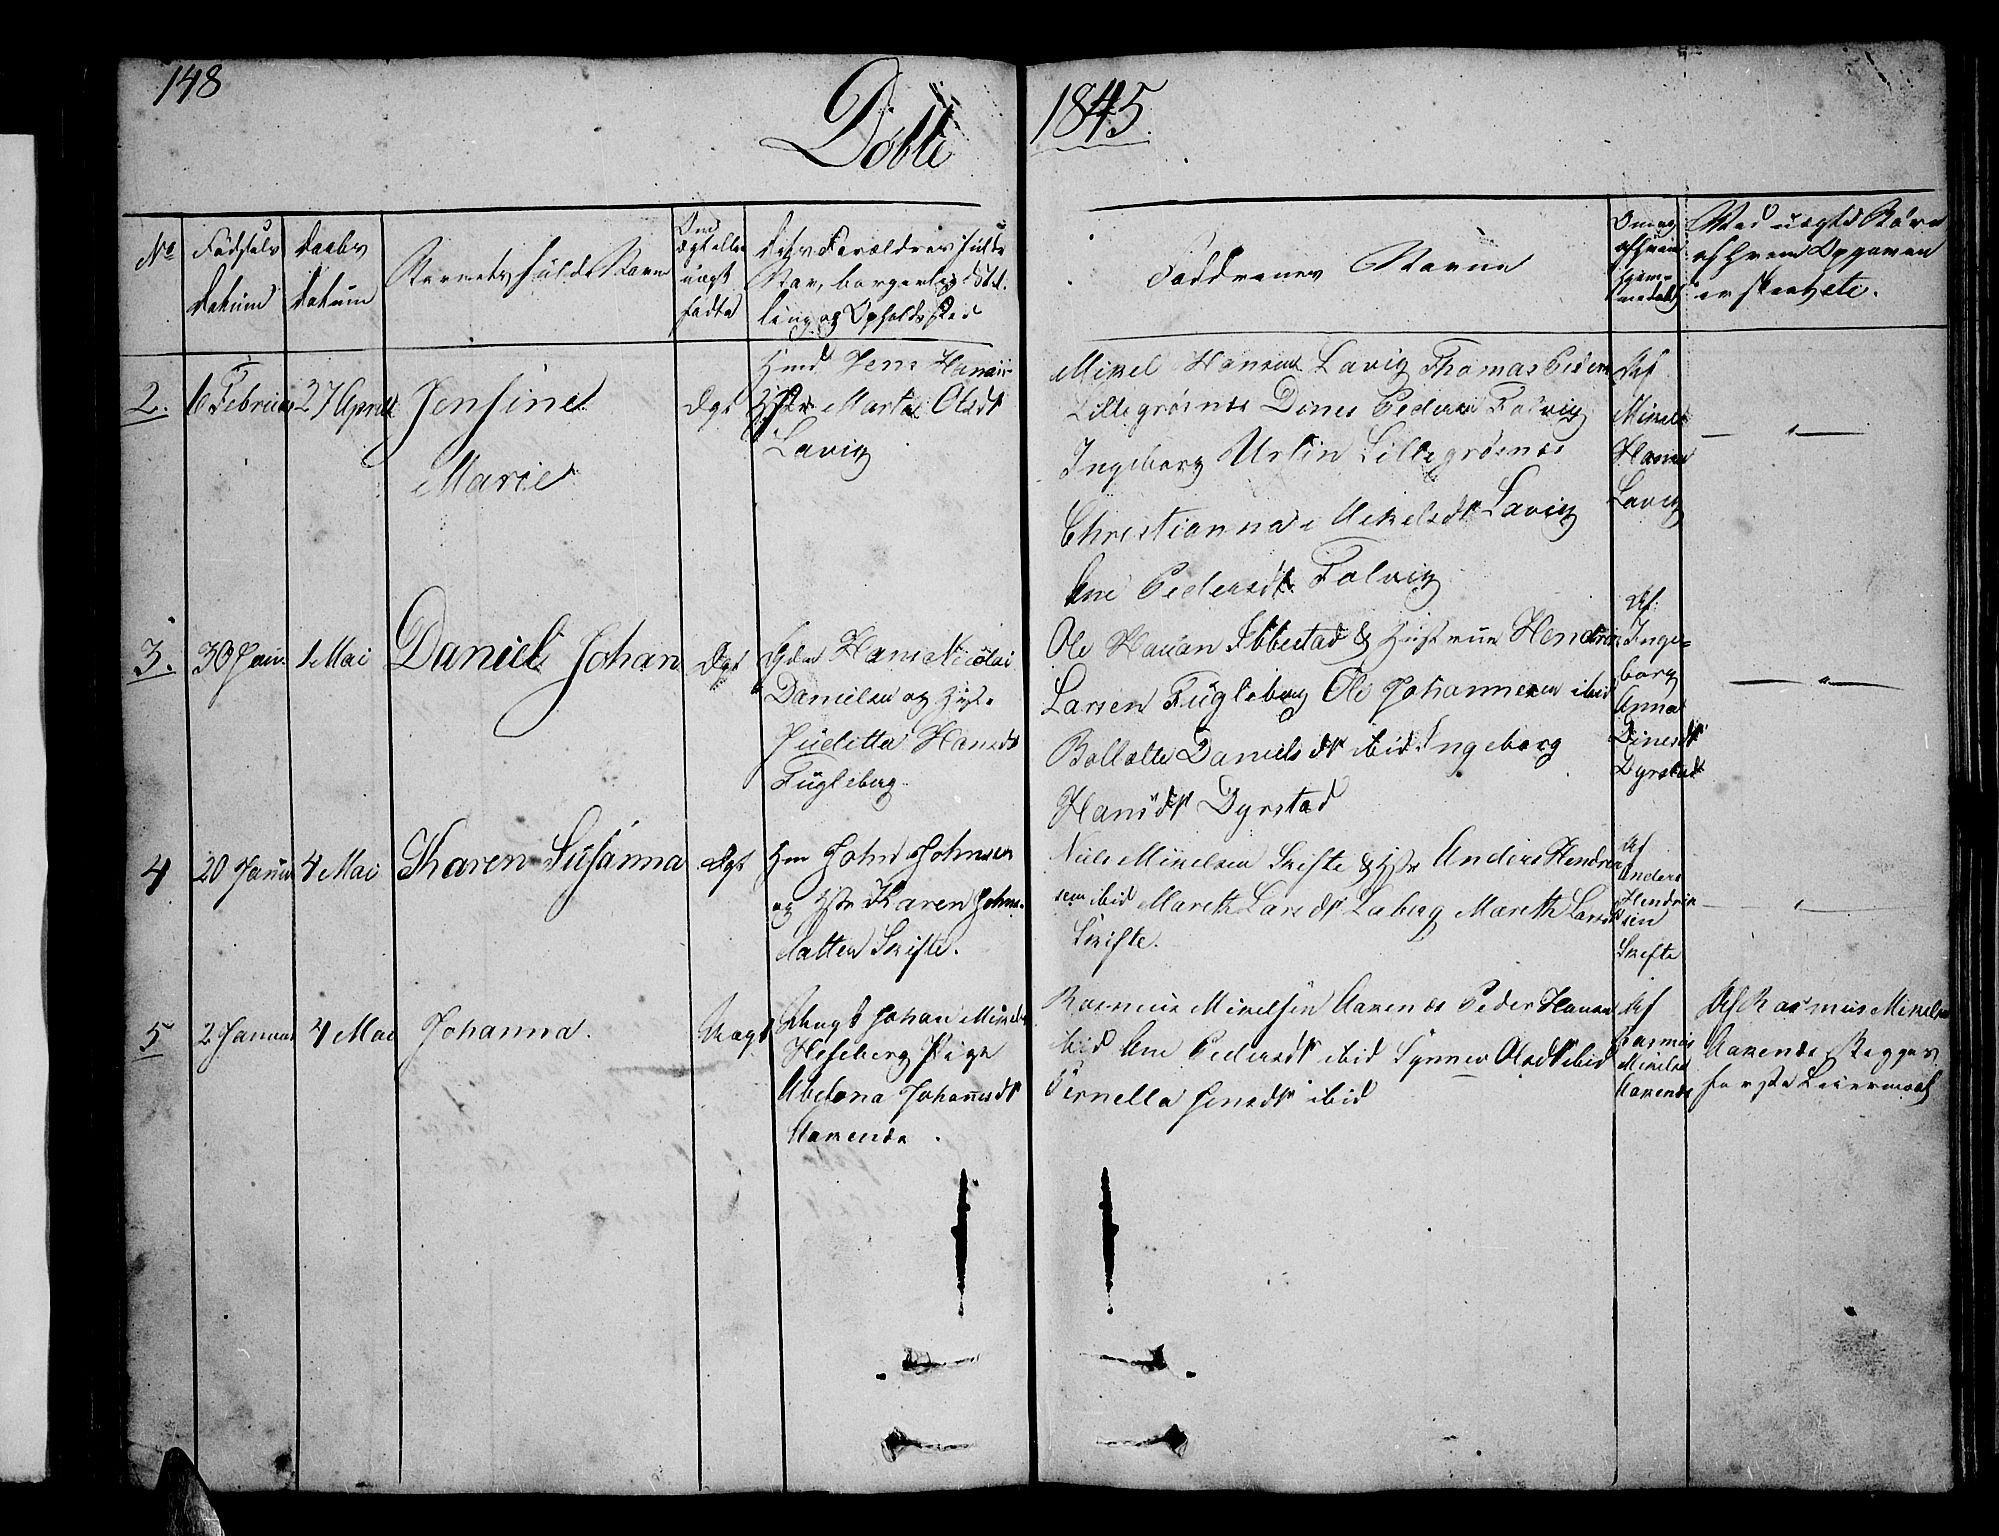 148
Døbte
1845.
No
Fødsels
Datum
Daabs
Datum
Barnets fulde Navn
Om
ægte eller
uægte
født
dets Forældres fulde
Nav, borgerlig Stil-
ling og Opholdssted
Faddrenes Navne
af hvem
hjem-
Ved uægte Børn
af hvem Opgaven
er skeet etc.
2.
6 Februar
27 April
Jensine
Marie
Ægt
Jens Hansen
Hstr Marta Olsdt
Lavig
Mikel Hansen Lavig Thomas Peders
Lillegrøsnæs Dines Pedersen Folvig
Ingeborg Lillegrøsnæs
Christianna Mikelsdt Lavig
Ane Pedersdt Folvig
Af
Mikel
Hansen
Lavig
— " —
3.
30 Janu.
1 Mai
Daniel Johan
Ægt
Gdm Hans Nicolai
Danielsen og Hust.
Juditta Hansdt
Fugleberg
Ole Hansen Ibbestad & Hustrue Hendrik
Larsen Fugleberg Ole Johannesen ibid
Danielsdt ibid. Ingeborg
Hansdt Dyrstad
Af.
Inge-
borg
Anna
Dinesdt
Dyrstad
— " —
4
20 Januar
4 Mai
Karen Susanna
Ægt
John Johnsen
og Hstr Karen Johns-
datten Skifte.
Niels Mikelsen Skifte & Hstr Anders Hendrik
sen ibid Mareth Larsdt Laberg Mareth Larsdt
Skifte.
Af
Anders
Hendrik
sen
Skifte
— " —
5
2 Januar
4 Mai
Johanna.
Uægt
Johan Mikels
Hesseberg Pige
Abelona Johannsdt
Aakenæs.
Rasmus Mikelsen Aakenæs Peder Hansen
ibid Ane Pedersdt ibid Synnev Olsdt ibid
Pernella Jensdt ibid
Af
Rasmus
Mikelsen
Aakenæs
Af Rasmus Mikelsen
Aakenæs Begges
første Leiermaal